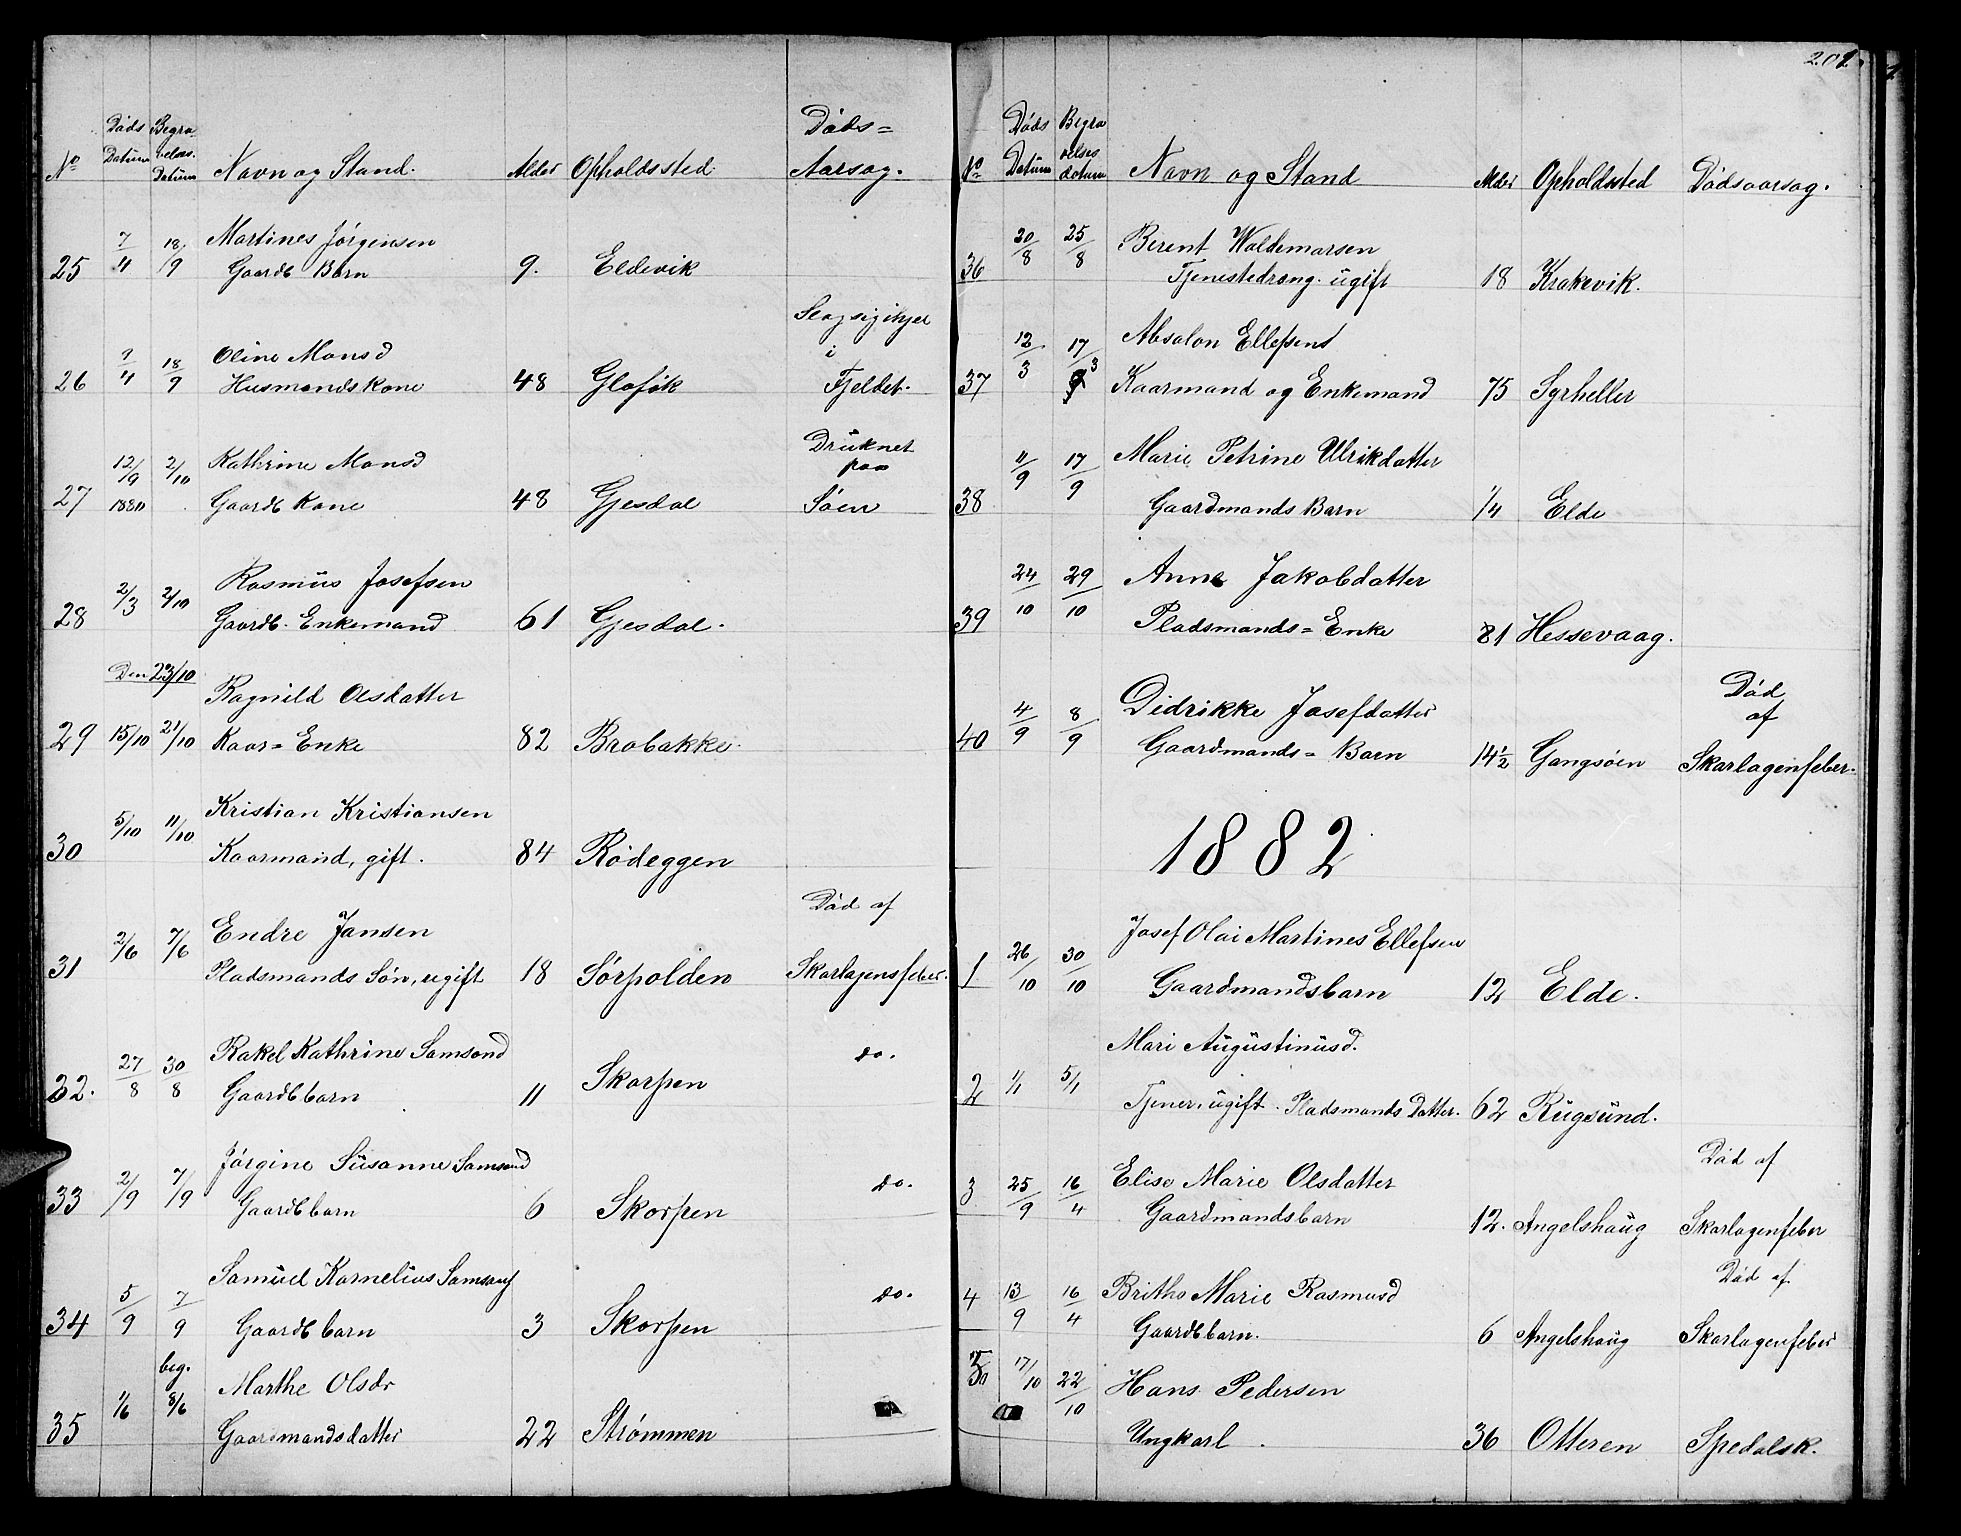 Nº Døds Datum Begravelses Datum Navn og Stand. Alder Opholdssted. Døds=Aarsag.
7/4 18/9 Martines Jørgensen
25 Gaardb Barn 9. Eldevik
Slog sig ihjel
9/4 18/9 Oline Monsd i
26 Husmandskone 48 Fjeldet.
Druknet
12/9 2/10 Kathrine Monsd paa
27 1880 Gaardb Kone 48 Gjesdal Søen
2/3 2/10 Rasmus Josefsen
28 Gaardb. Enkemand 61 Gjesdal.
Den 23/10
Ragnild Olsdatter
29 15/10 21/10 Kaar=Enke 82 Brobakke.
5/10 11/10 Kristian Kristiansen
30 Kaarmand, gift. 84 Rødeggen
Død af
2/6 7/6 Endre Jansen
31 Pladsmands Søn, ugift 18 Sørpolden Skarlagensfeber.
27/8 30/8 Rakel Kathrine Samsond do.
32. Gaardbbarn 11 Skorpen
2/9 7/9 Jørgine Susanne Samsond
33 Gaardbbarn 6 Skorpen do.
5/9 7/9 Samuel Kornelius Samsons
34 Gaardbbarn 3 Skorpen do.
beg.
1/6 8/6 Marthe Olsdr
35 Gaardmandsdatter 22 Strømmen
202
Nº Døds Datum Begravelses datum Navn og Stand Alder Opholdssted Dødsaarsag.
20/8 25/8 Berent Waldemarsen
36 Tjenestedreng. ugift 18 Krakevik.
12/3 17/3 Absalon Ellefsen
37 Kaarmand og Enkemand 75 Syrheller
11/9 17/9 Marie Petrine Ulrikdatter
38 Gaardmands Barn 1/4 Elde
24/10 29/10 Anne Jakobdatter
39 Pladsmands=Enke 81 Hessevaag.
Død
4/9 8/9 Didrikke Josefdatter af
40 Gaardmands=Barn 14½ Gangsøen Skarlagenfeber.
1882
26/10 30/10 Josef Olai Martines Ellefsen
1 Gaardmandsbarn 12 Elde.
Mari Augustinusd.
2 1/1 5/1 Tjener, ugift. Pladsmands datter. 62 Rugsund.
Død af
3 25/9 16/4 Elise Marie Olsdatter
Gaardmandsbarn 12. Angelshaug Skarlagenfeber
Død af
4 13/9 16/4 Britha Marie Rasmusd
Gaardbbarn. 6 Angelshaug Skarlagenfeber
5 17/10 22/10 Hans Pedersen
Ungkarl. 36 Otteren Spedalsk.